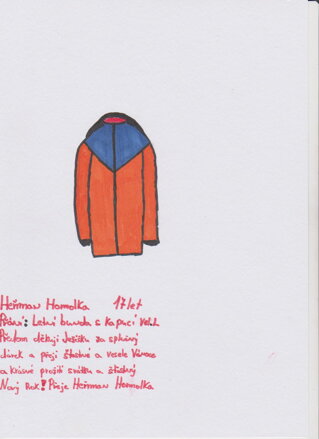 Heřman Homolka 17 let
Přání: Letní bunda s kapucí
Předem děkuji Ježíšku za splněný
dárek a přeji šťastné a veselé Vánoce
a krásné prožití svátků a šťastný
Nový Rok! Přeje Heřman Homolka